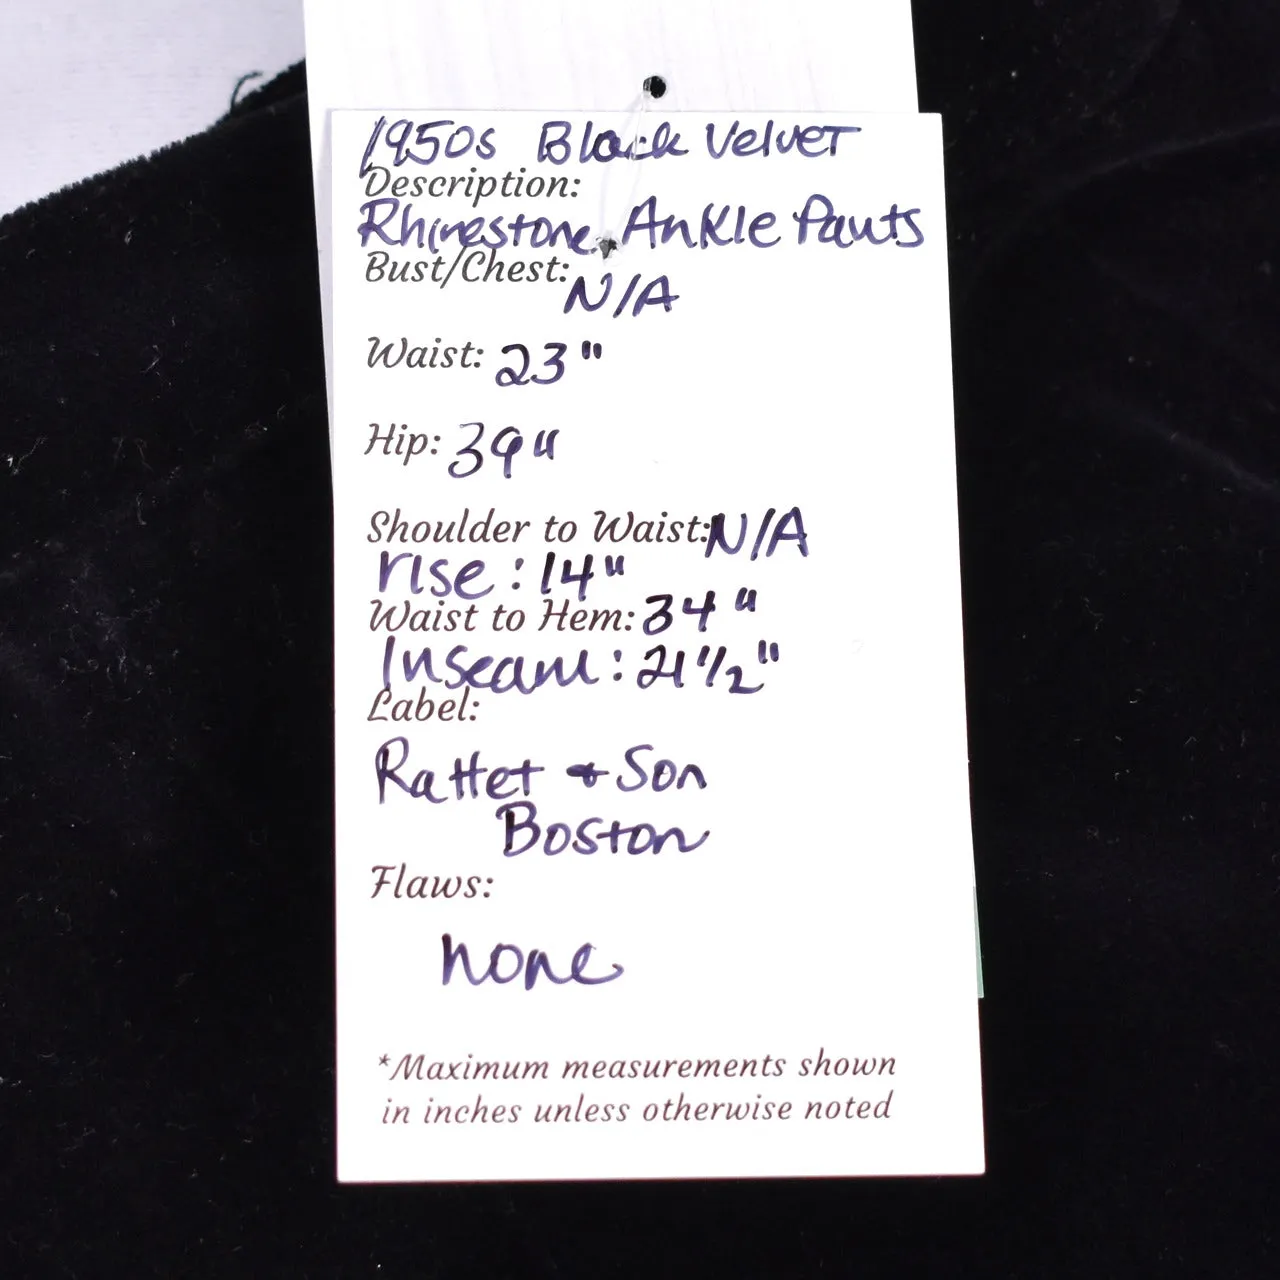 1950s Black Velvet
Description:
Rhinestone Ankle Pants
Bust/Chest:
N/A
Waist: 23"
Hip: 39"
Shoulder to Waist: N/A
rise: 14"
Waist to Hem: 34"
Inseam: 21 1/2"
Label:
Rattet + Son
Boston
Flaws:
none
*Maximum measurements shown
in inches unless otherwise noted